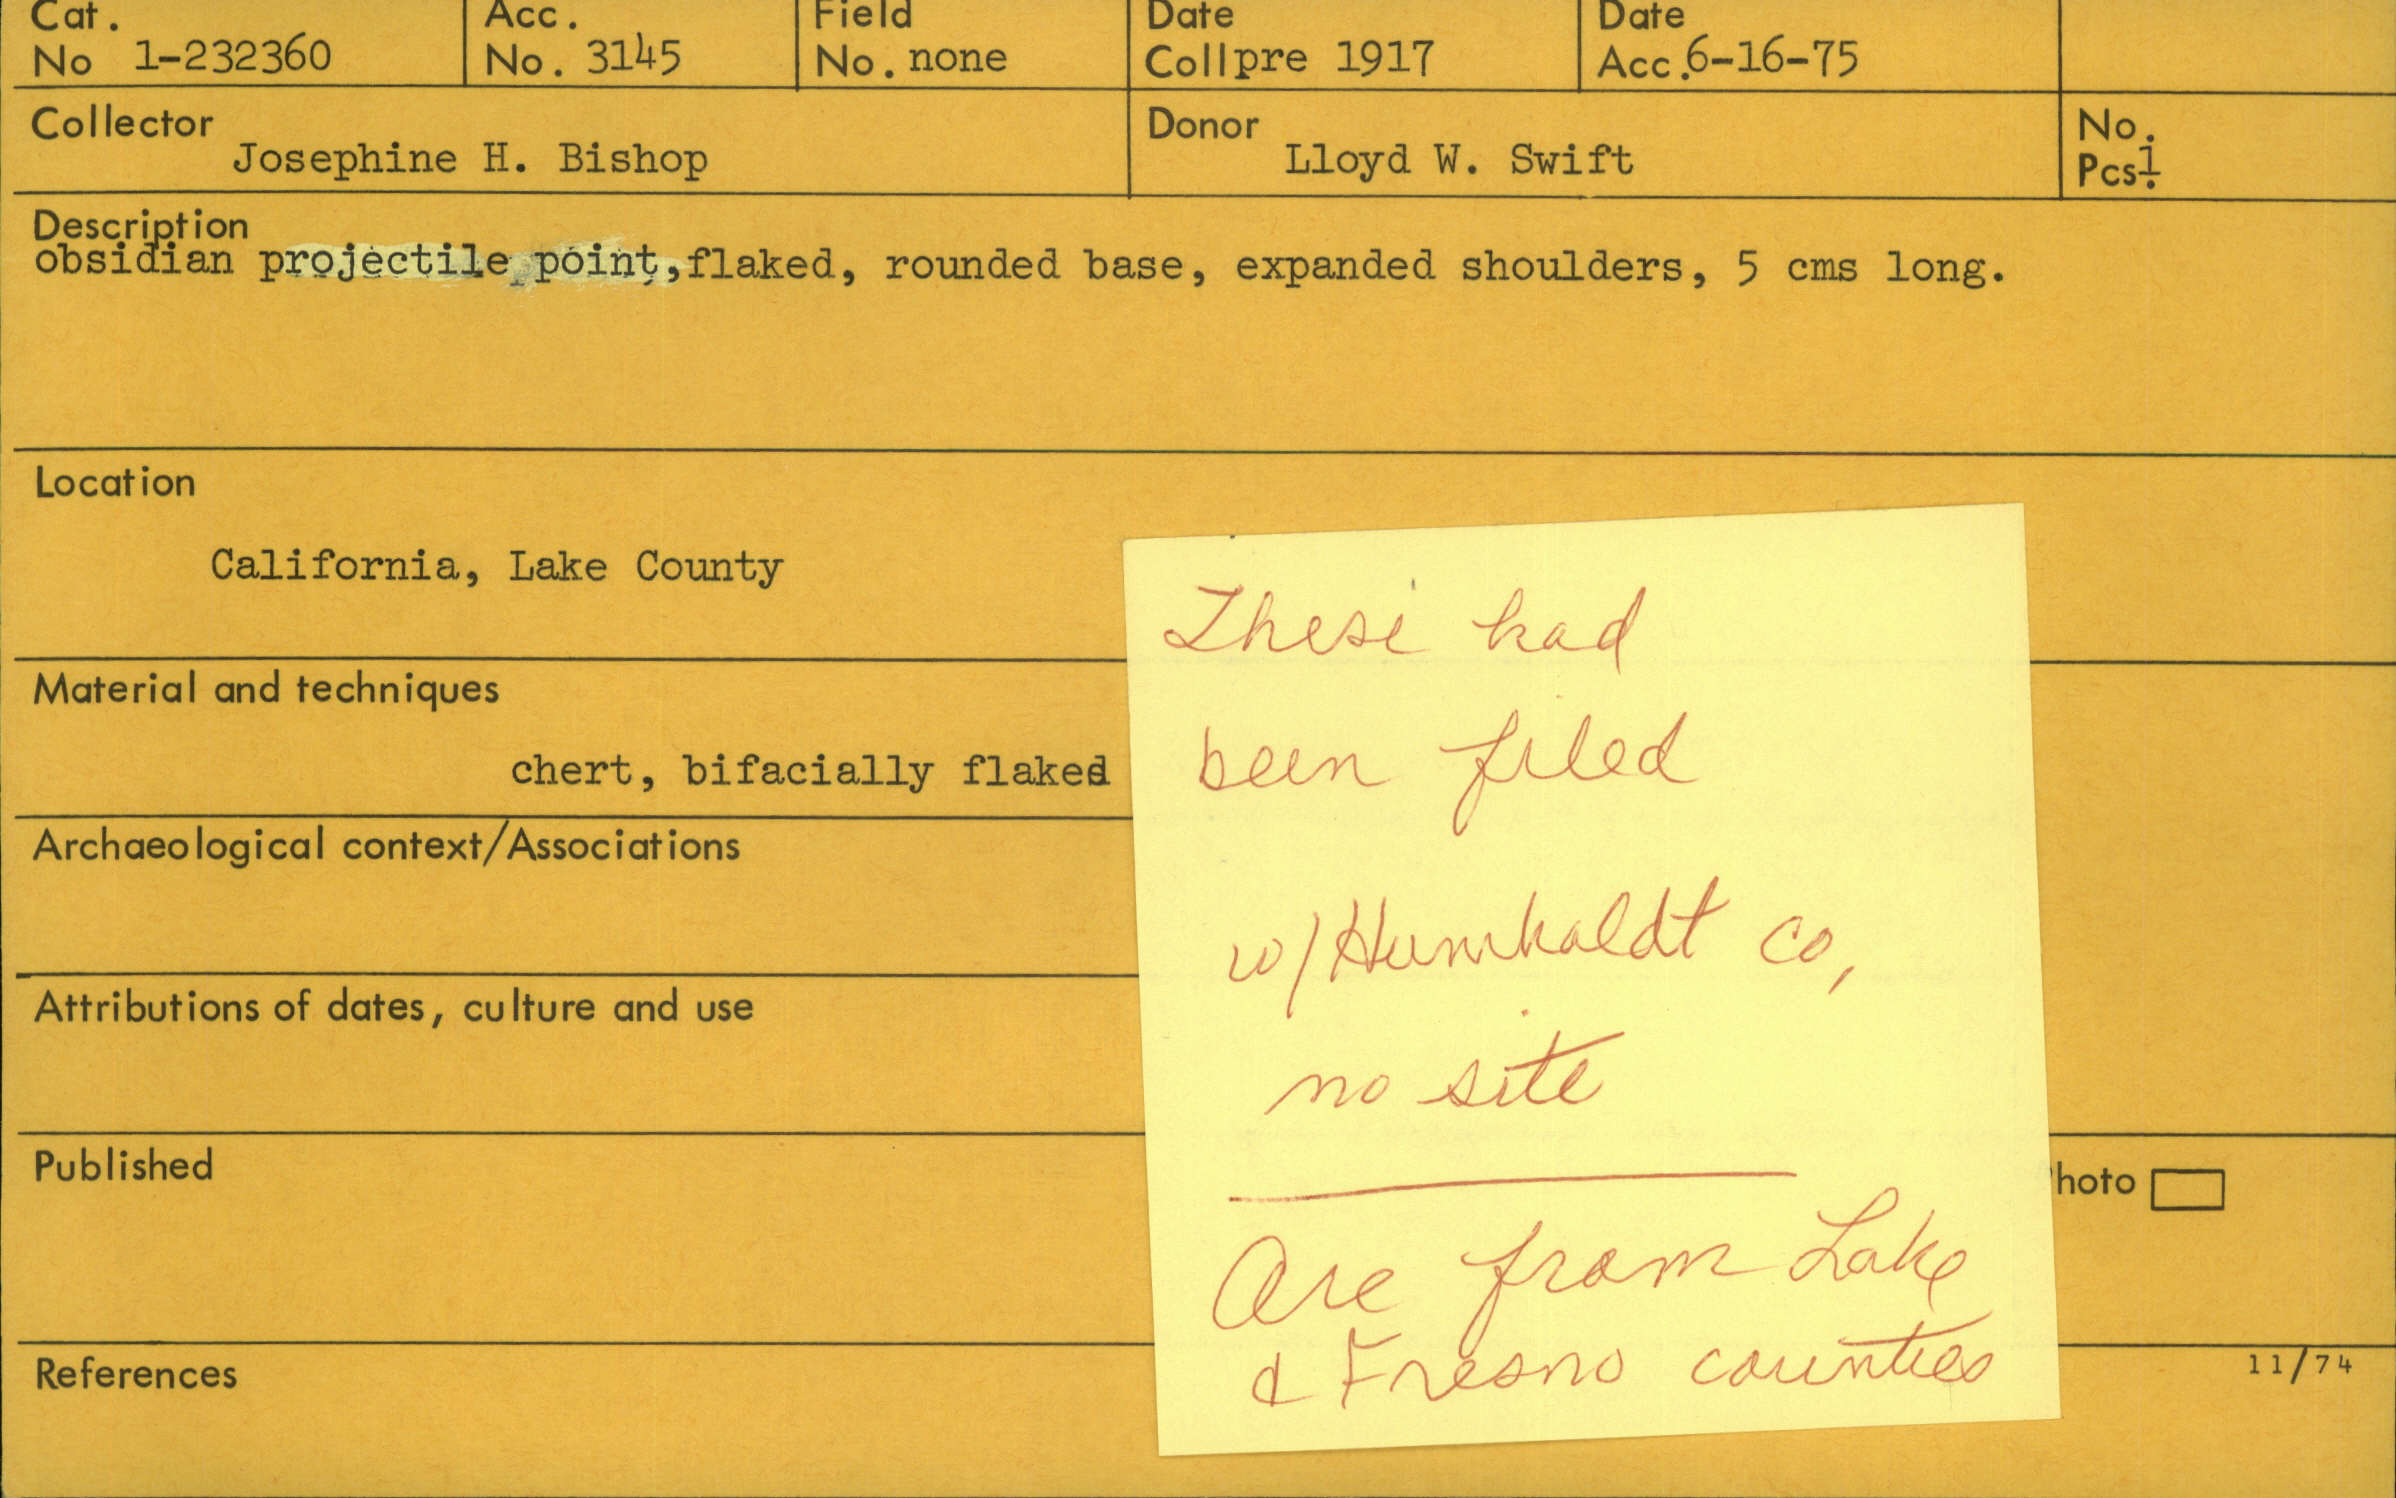 Cat. No 1-232360
Acc. No. 3145
Field No. none
Date Coll pre 1917
Date Acc. 6-16-75
Collector
Josephine H. Bishop
Donor
Lloyd W. Swift
No. Pcs. 1
Description
obsidian projectile point, flaked, rounded base, expanded shoulders, 5 cms long.
Location
California, Lake County
Material and techniques
chert, bifacially flaked
Archaeological context/Associations
Attributions of dates, culture and use
Published
hoto
References
11/74
These had
been filed
w/Humboldt Co,
no site
Are from Lake
& Fresno counties